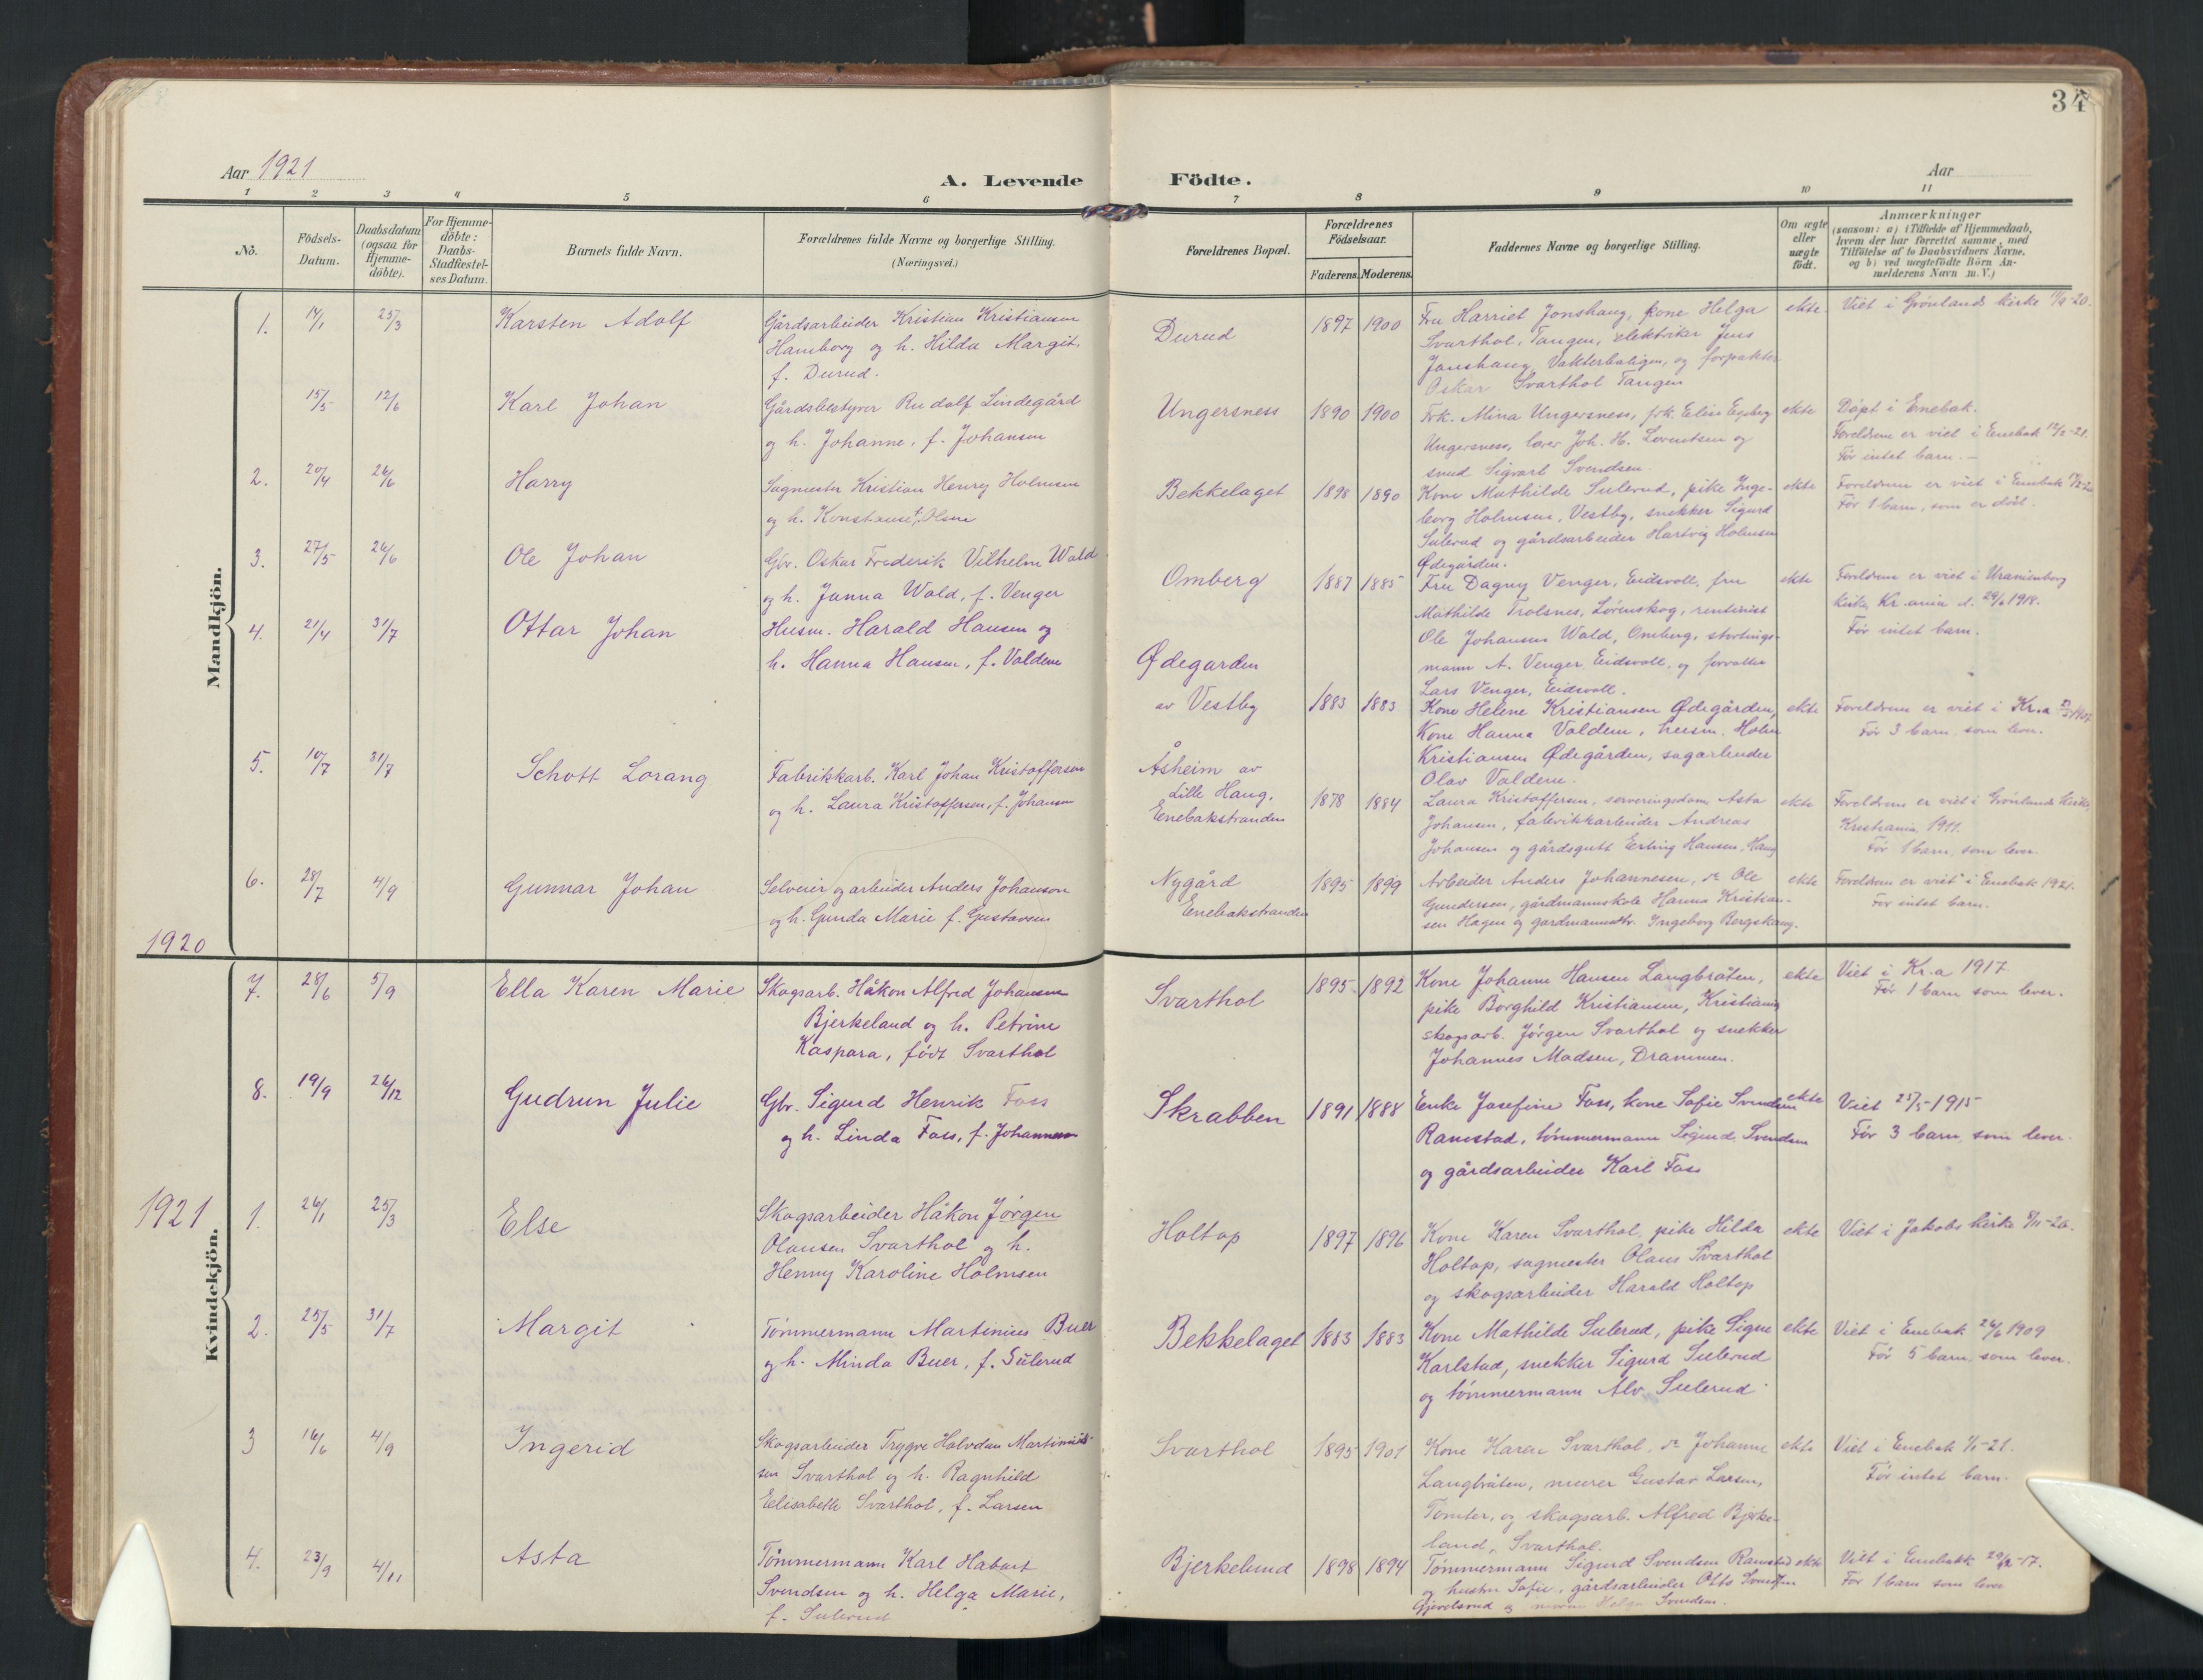 34
Aar 1921
A. Levende Födte.
Aar
1 2 3 4 5 6 7 8 9 10 11
No.
Födsels-Datum.
Daabsdatum (ogsaa for Hjemme-döbte).
For Hjemme-döbte: Daabs-Stadfæstel-ses Datum.
Barnets fulde Navn.
Forældrenes fulde Navne og borgerlige Stilling.
(Næringsvei.)
Forældrenes Bopæl.
Forældrenes Födselsaar.
Faderens. Moderens.
Faddernes Navne og borgerlige Stilling.
Om ægte eller uægte födt.
Anmærkninger
(saasom: a) i Tilfælde af Hjemmedaab,
hvem der har forrettet samme, med
Tilföielse af to Daabsvidners Navne,
og b) ved uægtefödte Börn An-
melderens Navn m. V.)
Mandkjön.
1. 14/1 25/3 Karsten Adolf
Gårdsarbeider Kristian Kristiansen
Hamborg og h. Hilda Margit,
f. Durud.
Durud 1897 1900
Fru Harriet Jonshaug, kone Helga
Svarthol, Tangen, elektriker Jens
Jonshaug, Vakterboligen, og forpakter
Oskar Svarthol Tangen
ekte.
Viet i Grønlands kirke
15/5 12/6 Karl Johan
Gårdsbestyrer Rudolf Lindegård
og h. Johanne, f. Johansen
Ungersness 1890 1900
Frk. Mina Ungersness, frk. Elise Engeberg
Ungersness, lærer Joh. H. Lorentsen og
smed Sigvart Svendsen.
ekte
Døpt i Enebak.
Foreldrene er viet i Enebak 12/2-21.
Før intet barn.-
2. 20/4 26/6 Harry
Sagmester Kristian Henry Holmsen
og h. Konstanse f. Olsen
Bekkelaget 1898 1890
Kone Mathilde Sulerud, pike Inge-
borg Holmsen, Vestby, snekker Sigurd
Sulerud og gårdsarbeider Hartvig Holmsen
Ødegården.
ekte
Foreldrene er viet i Enebak
Før 1 barn, som er død.
3. 27/5 26/6 Ole Johan
Gbr. Oskar Frederik Vilhelm Wald
og h. Janna Wald, f. Venger
Omberg 1887 1885
Fru Dagny Venger, Eidsvoll, fru
Mathilde Trolsnes, Lørenskog, rentenist
Ole Johansen Wald, Omberg, stortings-
mann A. Venger, Eidsvoll, og forvalter
Lars Venger, Eidsvoll.
ekte
Foreldrene er viet i Uranienborg
kirke, Kr.ania d. 29/6 1918.
Før intet barn.
4. 21/4 31/7 Ottar Johan
Husm. Harald Hansen og
h. Hanna Hansen, f. Valdem
Ødegarden
av Vestby 1883 1883
Kone Helene Kristiansen Ødegården,
Kone Hanna Valdem, husm. Holm
Kristiansen Ødegården, sagarbeider
Olav Valdem.
ekte
Foreldrene er viet i Kr.a
Før 3 barn, som lever.
5. 10/7 31/7 Schott Lorang
Fabrikkarb. Karl Johan Kristoffersen
og h. Laura Kristoffersen, f. Johansen
Åsheim av
Lille Haug,
Enebakstranden 1878 1884
Laura Kristoffersen, serveringsdame Asta
Johansen, fabrikkarbeider Andreas
Johansen og gårdsgutt Erling Hansen, Haug
ekte
Foreldrene er viet i Grønlands kirke,
Kristiania, 1911.
Før 1 barn, som lever.
6. 28/7 4/9 Gunnar Johan
Selveier og arbeider Anders Johanson
og h. Gunda Marie f. Gustavsen
Nygård
Enebakstranden 1895 1899
Arbeider Anders Johannesen, do Ole
Gunderson, gårdmannskole Hanna Kristian-
sen Hagen og gardmannsdtr. Ingeborg Bergskaug.
ekte
Foreldrene er viet i Enebak 1921.
Før intet barn.
1920
Kvindekjön.
7. 28/6 5/9 Ella Karen Marie
Skogsarb. Håkon Alfred Johansen
Bjerkeland og h. Petrine
Kaspara, født Svarthol
Svarthol 1895 1892
Kone Johanne Hansen Langbråten,
pike Borghild Kristiansen, Kristiania
skogsarb. Jørgen Svarthol og snekker
Johannes Madsen, Drammen.
ekte
Viet i Kr.a 1917.
Før 1 barn som lever.
8. 19/9 26/12 Gudrun Julie
Gbr. Sigurd Henrik Foss
og h. Linda Foss, f. Johannesen
Skrabben 1891 1888
Enke Josefine Foss, kone Sofie Svendsen
Ramstad, tømmermann Sigurd Svendsen
og gårdsarbeider Karl Foss
ekte
Viet 25/5-1915
Før 3 barn, som lever.
1921
1. 26/1 25/3 Else
Skogsarbeider Håkon Jørgen
Olausen Svarthol og h.
Henny Karoline Holmsen
Holtop 1897 1896
Kone Karen Svarthol, pike Hilda
Holtop, sagmester Olaus Svarthol
og skogsarbeider Harald Holtop
ekte
Viet i Jakobs kirke
2. 25/5 31/7 Margit
Tømmermann Martinius Buer
og h. Minda Buer, f. Sulerud
Bekkelaget 1883 1883
Kone Mathilde Sulerud, pike Signe
Karlstad, snekker Sigurd Sulerud
og tømmermann Alv Sulerud
ekte
Viet i Enebak 26/6 1909
Før 5 barn, som lever.
3 16/6 4/9 Ingerid
Skogsarbeider Trygve Halvdan Martinius-
sen Svarthol og h. Ragnhild
Elisabeth Svarthol, f. Larsen
Svarthol 1895 1901
Kone Karen Svarthol, do Johanne
Langbråten, murer Gustav Larsen,
Tomter, og skogsarb. Alfred Bjerke-
land, Svarthol.
ekte
Viet i Enebak 1/1-21.
Før intet barn.
4. 23/9 4/11 Asta
Tømmermann Karl Habart
Svendsen og h. Helga Marie,
f. Sulerud
Bjerkelund 1898 1894
Tømmermann Sigurd Svendsen Ramstad
og hustru Sofie, gårdsarbeider Otto Svendsen
Gjevelsrud og Helga Svendsen.
ekte
Viet i Enebakk
Før 1 barn som lever